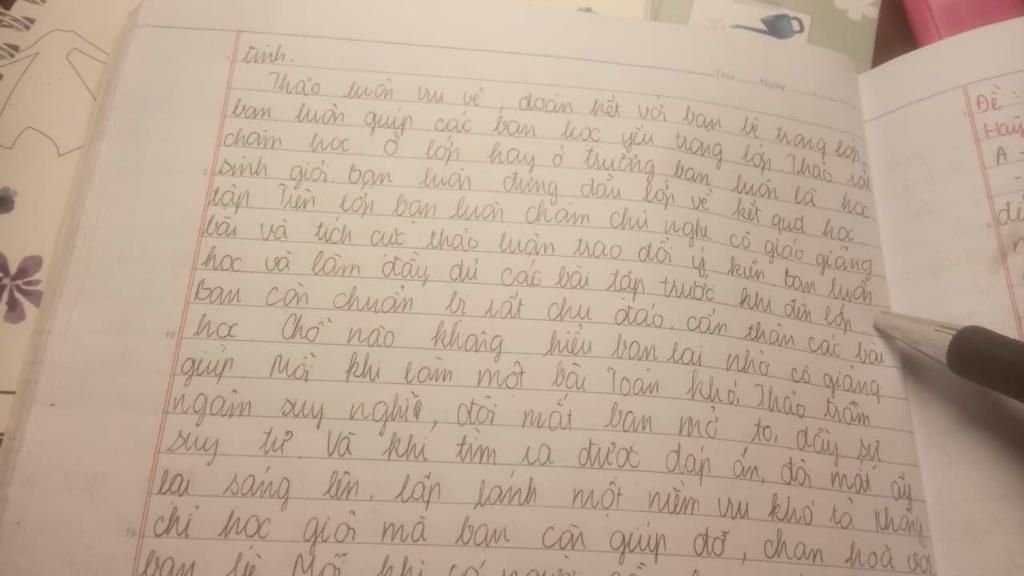 tính.
Thứ ..... Ngày .....
Thảo luôn vui vẻ, đoàn kết với bạn bè trong lớp,
bạn luôn giúp các bạn học yếu trong lớp. Thảo rất
chăm học. Ở lớp hay ở trường bạn luôn là học
sinh giỏi. bạn luôn đứng đầu lớp về kết quả học
tập. Trên lớp bạn luôn chăm chú nghe cô giáo giảng
bài và tích cực thảo luận trao đổi ý kiến. bạn luôn
học và làm đầy đủ các bài tập trước khi đến lớp
Bạn còn chuẩn bị rất chu đáo, cẩn thận các bài
học. Chỗ nào không hiểu bạn lại nhờ cô giảng
giúp. Mỗi khi làm một bài Toán khó, Thảo trầm
ngâm suy nghĩ, đôi mắt bạn mở to, đầy sự
suy tư. Và khi tìm ra được đáp án, đôi mắt ấy
lại sáng lên, lấp lánh một niềm vui khó tả. không
chỉ học giỏi mà bạn còn giúp đỡ, chan hoà với
bạn bè. Mỗi khi có người
Đề :
A